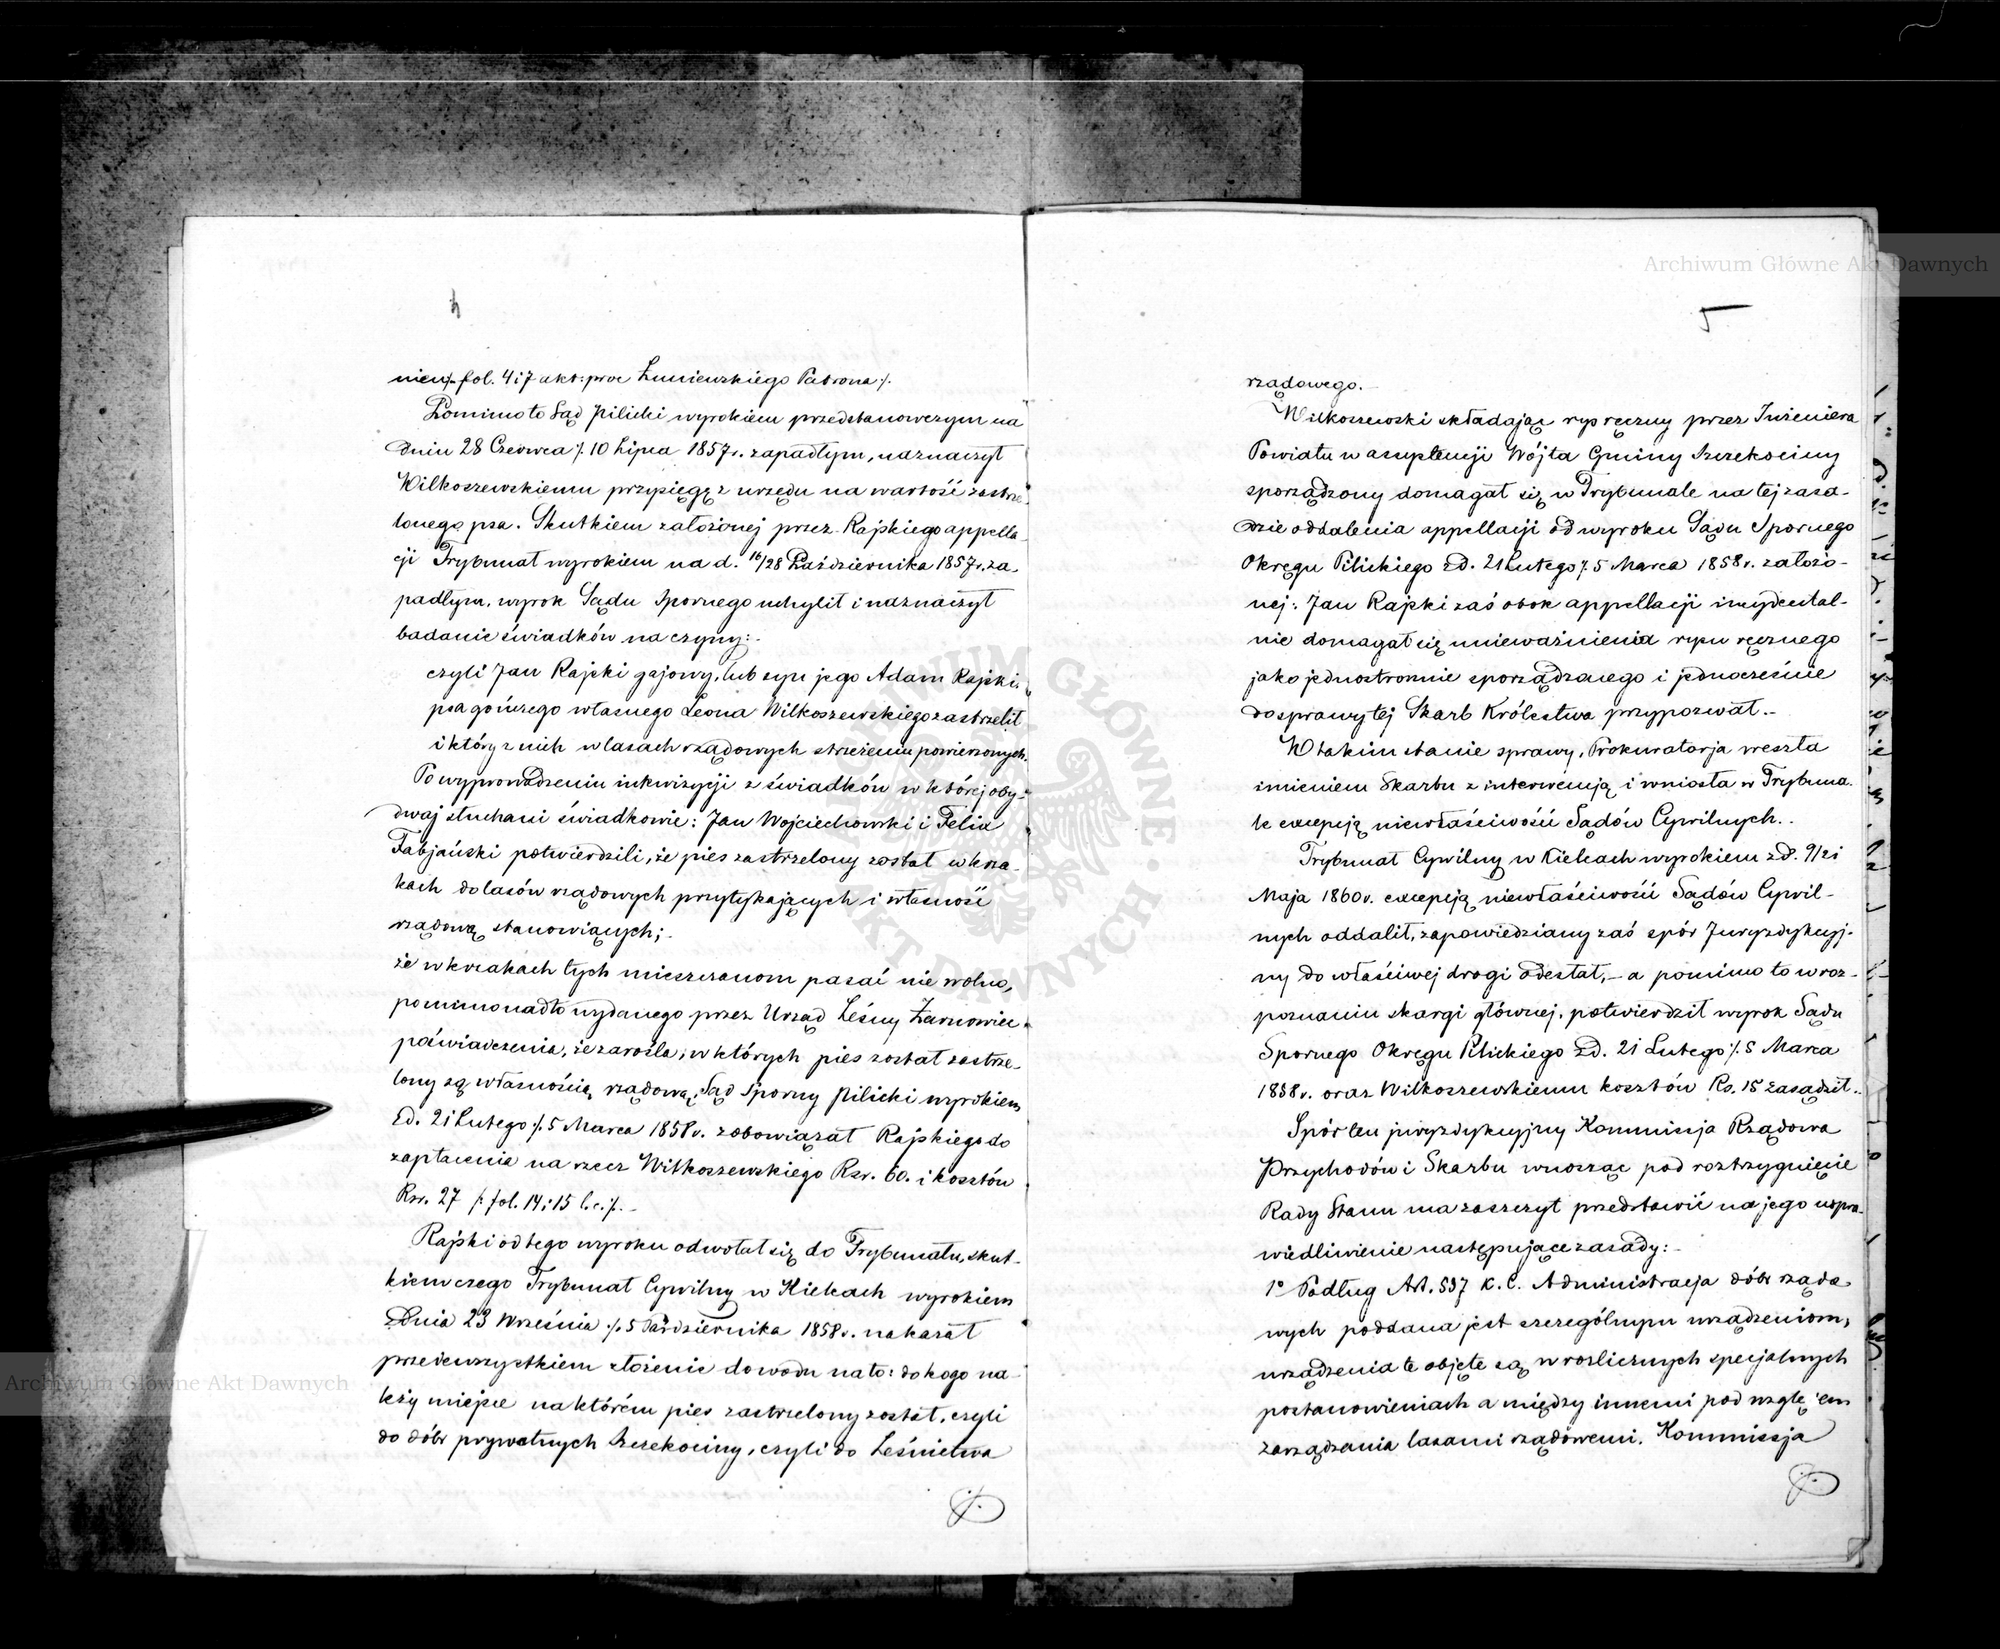 4
nieu /: fol. 4 i 7 akt: proc Łuniewskiego Patrona :/.
Pomimo to Sąd Pilicki wyrokiem przedstanowczym na
dniu 28 Czerwca /. 10 Lipca 1857 r. zapadłym, naznaczył
Wilkoszewskiemu przysięgę z urzędu na wartość zastrze-
lonego psa. Skutkiem założonej przez Rajskiego appella-
cji Trybunał wyrokiem na d. 16/28 Października 1857 r. za-
padłym, wyrok Sądu Spornego uchylił i naznaczył
badanie świadków na czyny:
czyli Jan Rajski gajowy, lub syn jego Adam Rajski,
psa gończego własnego Leona Wilkoszewskiego zastrzelił
i który z nich w lasach rządowych strzeżeniu powierzonych.
Po wyprowadzeniu inkwizycji z świadków w której oby-
dwaj słuchani świadkowie: Jan Wojciechowski i Felix
Fabjański potwierdzili, że pies zastrzelony został w krza-
kach do lasów rządowych przytykających i własność
rządową stanowiących;
że w krzakach tych mieszczanom pasać nie wolno,
pomimo nadto wydanego przez Urząd Leśny Żarnowiec
poświadczenia, że zarośla, w których pies został zastrze-
lony są własnością rządową, Sąd Sporny Pilicki wyrokiem
z d. 21 Lutego /. 5 Marca 1858 r. zobowiązał Rajskiego do
zapłacenia na rzecz Wilkoszewskiego Rsr. 60. i kosztów
Rsr. 27 /: fol. 14 i 15 l. c. :/. –
Rajski od tego wyroku odwołał się do Trybunału, skut-
kiem czego Trybunał Cywilny w Kielcach wyrokiem
z dnia 23 Września /. 5 Października 1858 r. nakazał
przedewszystkiem złożenie dowodu na to: do kogo na-
leży miejsce na którém pies zastrzelony został, czyli
do dóbr prywatnych Szczekociny, czyli do Leśnictwa
5
rządowego. –
Wilkoszewski składając rys ręczny przez Inżeniera
Powiatu w assystencji Wójta Gminy Szczekociny
sporządzony domagał się w Trybunale na tej zasa-
dzie oddalenia appellacji od wyroku Sądu Spornego
Okręgu Pilickiego z d. 21 Lutego /. 5 Marca 1858 r. założo-
nej: Jan Rajski zaś obok appellacji incydental-
nie domagał się unieważnienia rysu ręcznego
jako jednostronnie sporządzonego i jednocześnie
do sprawy tej Skarb Królestwa przypozwał. –
W takim stanie sprawy, Prokuratorja weszła
imieniem Skarbu z interwencją i wniosła w Trybuna-
le excepcją niewłaściwości Sądów Cywilnych. .
Trybunał Cywilny w Kielcach wyrokiem z d. 9/21
Maja 1860 r. excepcją niewłaściwości Sądów Cywil-
nych oddalił, zapowiedziany zaś spór Juryzdykcyj-
ny do właściwej drogi odesłał, – a pomimo to w roz-
poznaniu skargi głównej, potwierdził wyrok Sądu
Spornego Okręgu Pilickiego z d. 21 Lutego /. 5 Marca
1858 r. oraz Wilkoszewskiemu kosztów Rs. 15 zasądził. .
Spór ten juryzdykcyjny Kommissja Rządowa
Przychodów i Skarbu wnosząc pod roztrzygnięcie
Rady Stanu ma zaszczyt przedstawić na jego uspra-
wiedliwienie następujące zasady: –
1° Podług Art. 537 K. C. Administracja dóbr rządo-
wych poddana jest szczególnym urządzeniom,
urządzenia te objęte są w rozlicznych specjalnych
postanowieniach a między innemi pod względem
zarządzania lasami rządowemi. Kommissja
Archiwum Główne Akt Dawnych
Archiwum Główne Akt Dawnych
ARCHIWUM GŁÓWNE AKT DAWNYCH